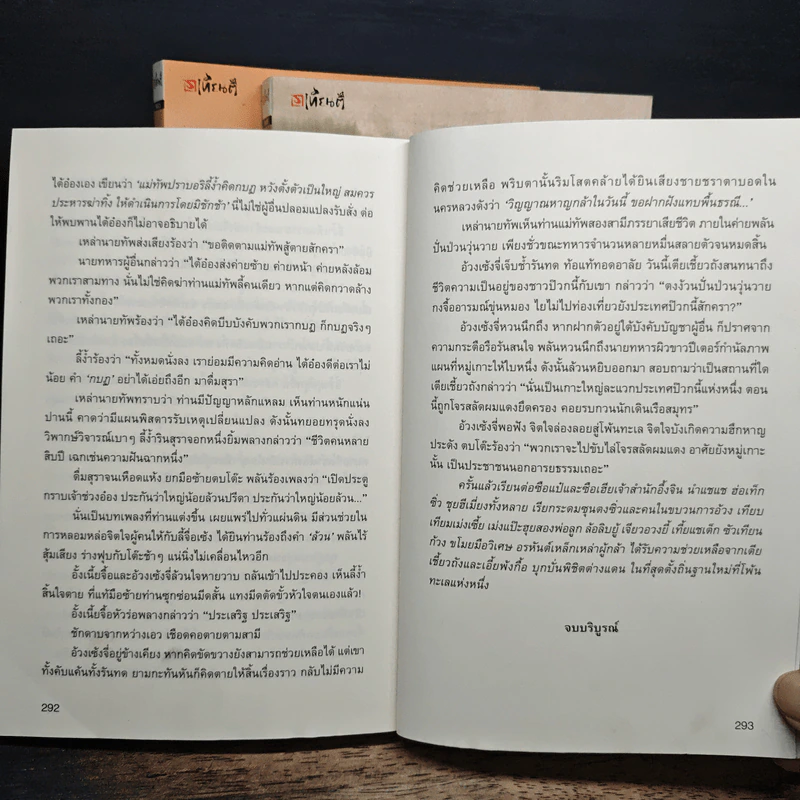 เทียนตี้
เทียนตี้
ได้อ๋องเอง เขียนว่า ‘แม่ทัพปราบอริลี้งํ้าคิดกบฏ หวังตั้งตัวเป็นใหญ่ สมควร
ประหารฆ่าทิ้ง ให้ดำเนินการโดยมิชักช้า’ นี่ไม่ใช่ผู้อื่นปลอมแปลงรับสั่ง ต่อ
ให้พบพานได้อ๋องก็ไม่อาจอธิบายได้
เหล่านายทัพส่งเสียงร้องว่า “ขอติดตามแม่ทัพสู้ตายสักครา”
นายทหารผู้อื่นกล่าวว่า “ได้อ๋องส่งค่ายซ้าย ค่ายหน้า ค่ายหลังล้อม
พวกเราสามทาง นั่นไม่ใช่คิดฆ่าท่านแม่ทัพลี้คนเดียว หากแต่คิดกวาดล้าง
พวกเราทั้งกอง”
เหล่านายทัพร้องว่า “ได้อ๋องคิดบีบบังคับพวกเรากบฏ ก็กบฏจริงๆ
เถอะ”
ลี้งํ้าร้องว่า “ทั้งหมดนั่งลง เราย่อมมีความคิดอ่าน ได้อ๋องดีต่อเราไม่
น้อย คำ ‘กบฏ’ อย่าได้เอ่ยถึงอีก มาดื่มสุรา”
เหล่านายทัพทราบว่า ท่านมีปัญญาหลักแหลม เห็นท่านหนักแน่น
ปานนี้ คาดว่ามีแผนพิสดารรับเหตุเปลี่ยนแปลง ดังนั้นทยอยทรุดนั่งลง
วิพากษ์วิจารณ์เบาๆ ลี้งํ้ารินสุราจอกหนึ่งยิ้มพลางกล่าวว่า “ชีวิตคนหลาย
สิบปี เฉกเช่นความฝันฉากหนึ่ง”
ดื่มสุราจนเหือดแห้ง ยกมือซ้ายตบโต๊ะ พลันร้องเพลงว่า “เปิดประตู
กราบเจ้าช่วงอ๋อง ประกันว่าใหญ่น้อยล้วนปรีดา ประกันว่าใหญ่น้อยล้วน...”
นั่นเป็นบทเพลงที่ท่านแต่งขึ้น เผยแพร่ไปทั่วแผ่นดิน มีส่วนช่วยใน
การหลอมหล่อจิตใจผู้คนให้กับลี้จื่อเซ้ง ได้ยินท่านร้องถึงคำ ‘ล้วน’ พลันไร้
สุ้มเสียง ร่างฟุบกับโต๊ะช้าๆ แน่นิ่งไม่เคลื่อนไหวอีก
อั้งเนี้ยจื้อและอ้วงเซ้งจี่ล้วนใจหายวาบ ถลันเข้าไปประคอง เห็นลี้งํ้า
สิ้นใจตาย ที่แท้มือซ้ายท่านซุกซ่อนมีดสั้น แทงมีดตัดขั้วหัวใจตนเองแล้ว!
อั้งเนี้ยจื้อหัวร่อพลางกล่าวว่า “ประเสริฐ ประเสริฐ”
ชักดาบจากหว่างเอว เชือดคอตายตามสามี
อ้วงเซ้งจี่อยู่ข้างเคียง หากคิดขัดขวางยังสามารถช่วยเหลือได้ แต่เขา
ทั้งคับแค้นทั้งรันทด ยามกะทันหันก็คิดตายให้สิ้นเรื่องราว กลับไม่มีความ
292
คิดช่วยเหลือ พริบตานั้นริมโสตคล้ายได้ยินเสียงชายชราตาบอดใน
นครหลวงดังว่า ‘วิญญาณหาญกล้าในวันนี้ ขอฝากฝังแทบพื้นธรณี...’
เหล่านายทัพเห็นท่านแม่ทัพสองสามีภรรยาเสียชีวิต ภายในค่ายพลัน
ปั่นป่วนวุ่นวาย เพียงชั่วขณะทหารจำนวนหลายหมื่นสลายตัวจนหมดสิ้น
อ้วงเซ้งจี่เจ็บช้ำรันทด ท้อแท้ทอดอาลัย วันนี้เตียเซี้ยวถังสนทนาถึง
ชีวิตความเป็นอยู่ของชาวป๊วกนี้กับเขา กล่าวว่า “ตงง้วนปั่นป่วนวุ่นวาย
กงจื้ออารมณ์ขุ่นหมอง ไยไม่ไปท่องเที่ยวยังประเทศป๊วกนี้สักครา?”
อ้วงเซ้งจี่หวนนึกถึง หากฝากตัวอยู่ใต้บังคับบัญชาผู้อื่น ก็ปราศจาก
ความกระตือรือร้นสนใจ พลันหวนนึกถึงนายทหารผิวขาวปีเตอร์กำนัลภาพ
แผนที่หมู่เกาะให้ใบหนึ่ง ดังนั้นล้วงหยิบออกมา สอบถามว่าเป็นสถานที่ใด
เตียเซี้ยวถังกล่าวว่า “นั่นเป็นเกาะใหญ่ละแวกประเทศป๊วกนี้แห่งหนึ่ง ตอน
นี้ถูกโจรสลัดผมแดงยึดครอง คอยรบกวนนักเดินเรือสมุทร”
อ้วงเซ้งจี่พอฟัง จิตใจล่องลอยสู่โพ้นทะเล จิตใจบังเกิดความฮึกหาญ
ประดัง ตบโต๊ะร้องว่า “พวกเราจะไปขับไล่โจรสลัดผมแดง อาศัยยังหมู่เกาะ
นั้น เป็นประชาชนนอกอารยธรรมเถอะ”
ครั้นแล้วเรียนต่อซือแป๋และซือเฮียเจ้าสำนักอึ้งจิน นำแชแช ฮ่อเท็ก
ซิ่ว ชุยฮีเมี่ยงทั้งหลาย เรียกระดมซุนตงซิ่วและคนในขบวนการอ้วง เทียบ
เทียมเม่งเซี้ย เม่งแป๊ะฮุยสองพ่อลูก ล้อลิบยู้ เจียวอวงยี้ เที้ยแชเต็ก ซัวเทียน
ก้วง ขโมยมือวิเศษ อรหันต์เหล็กเหล่าผู้กล้า ได้รับความช่วยเหลือจากเตีย
เซี้ยวถังและเอี้ยพ้งกื้อ บุกบั่นพิชิตต่างแดน ในที่สุดตั้งถิ่นฐานใหม่ที่โพ้น
ทะเลแห่งหนึ่ง
จบบริบูรณ์
293